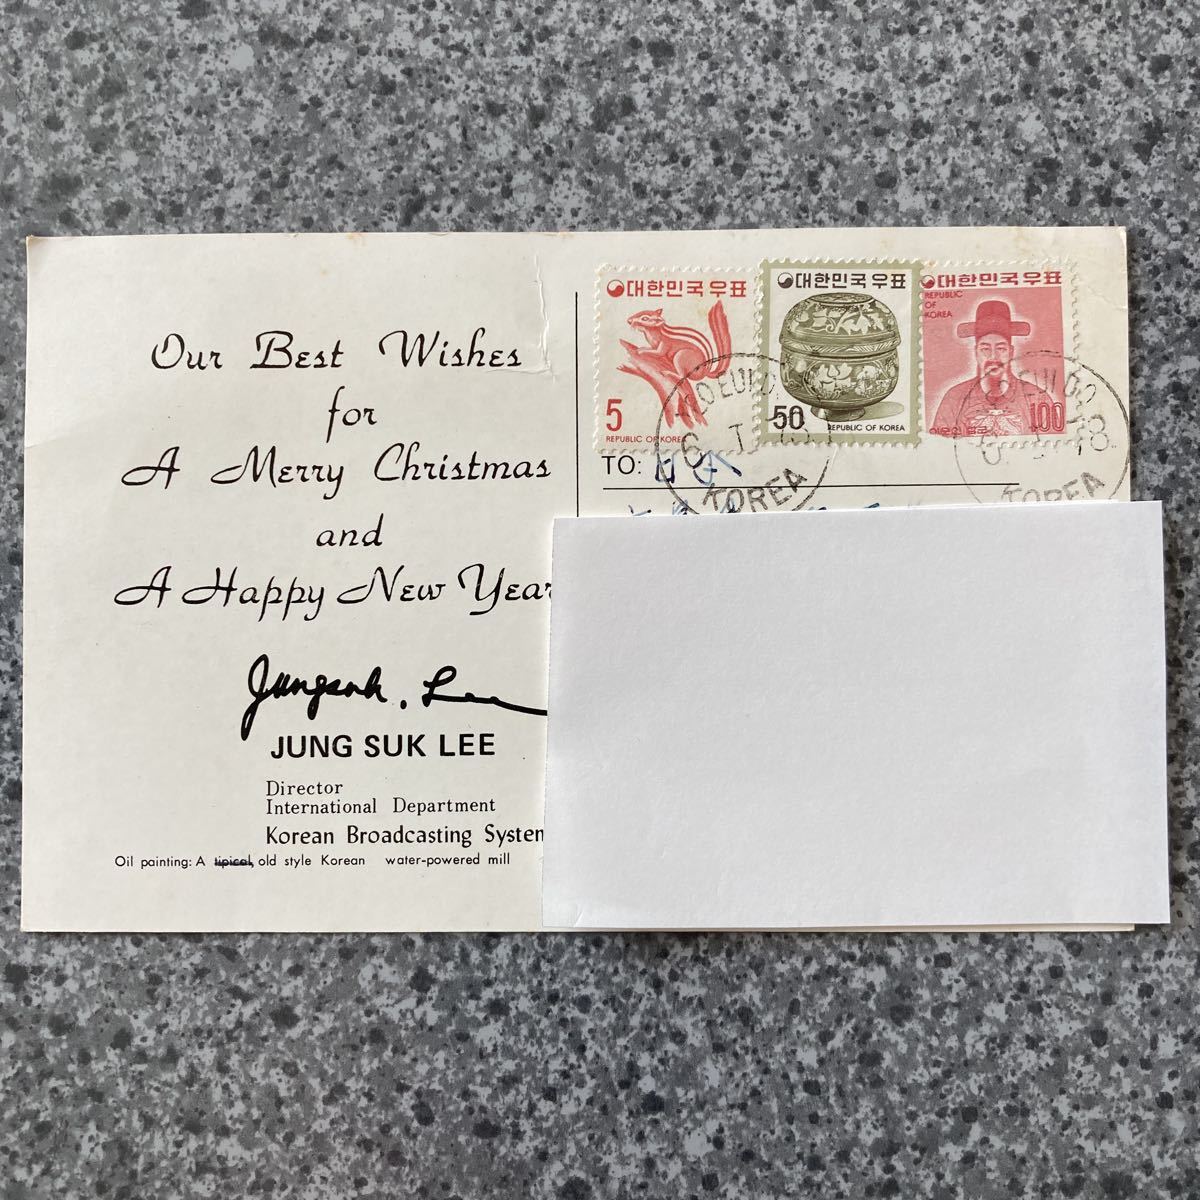 Our Best Wishes
for
A Merry Christmas
and
A Happy New Year
Jungsuk. Lee
JUNG SUK LEE
Director
International Department
Korean Broadcasting System
Oil painting: A tipical, old style Korean water-powered mill
대한민국우표
5
REPUBLIC OF KOREA
대한민국우표
50
REPUBLIC OF KOREA
대한민국우표
REPUBLIC
OF
KOREA
100
TO: 日本
KOREA
KOREA